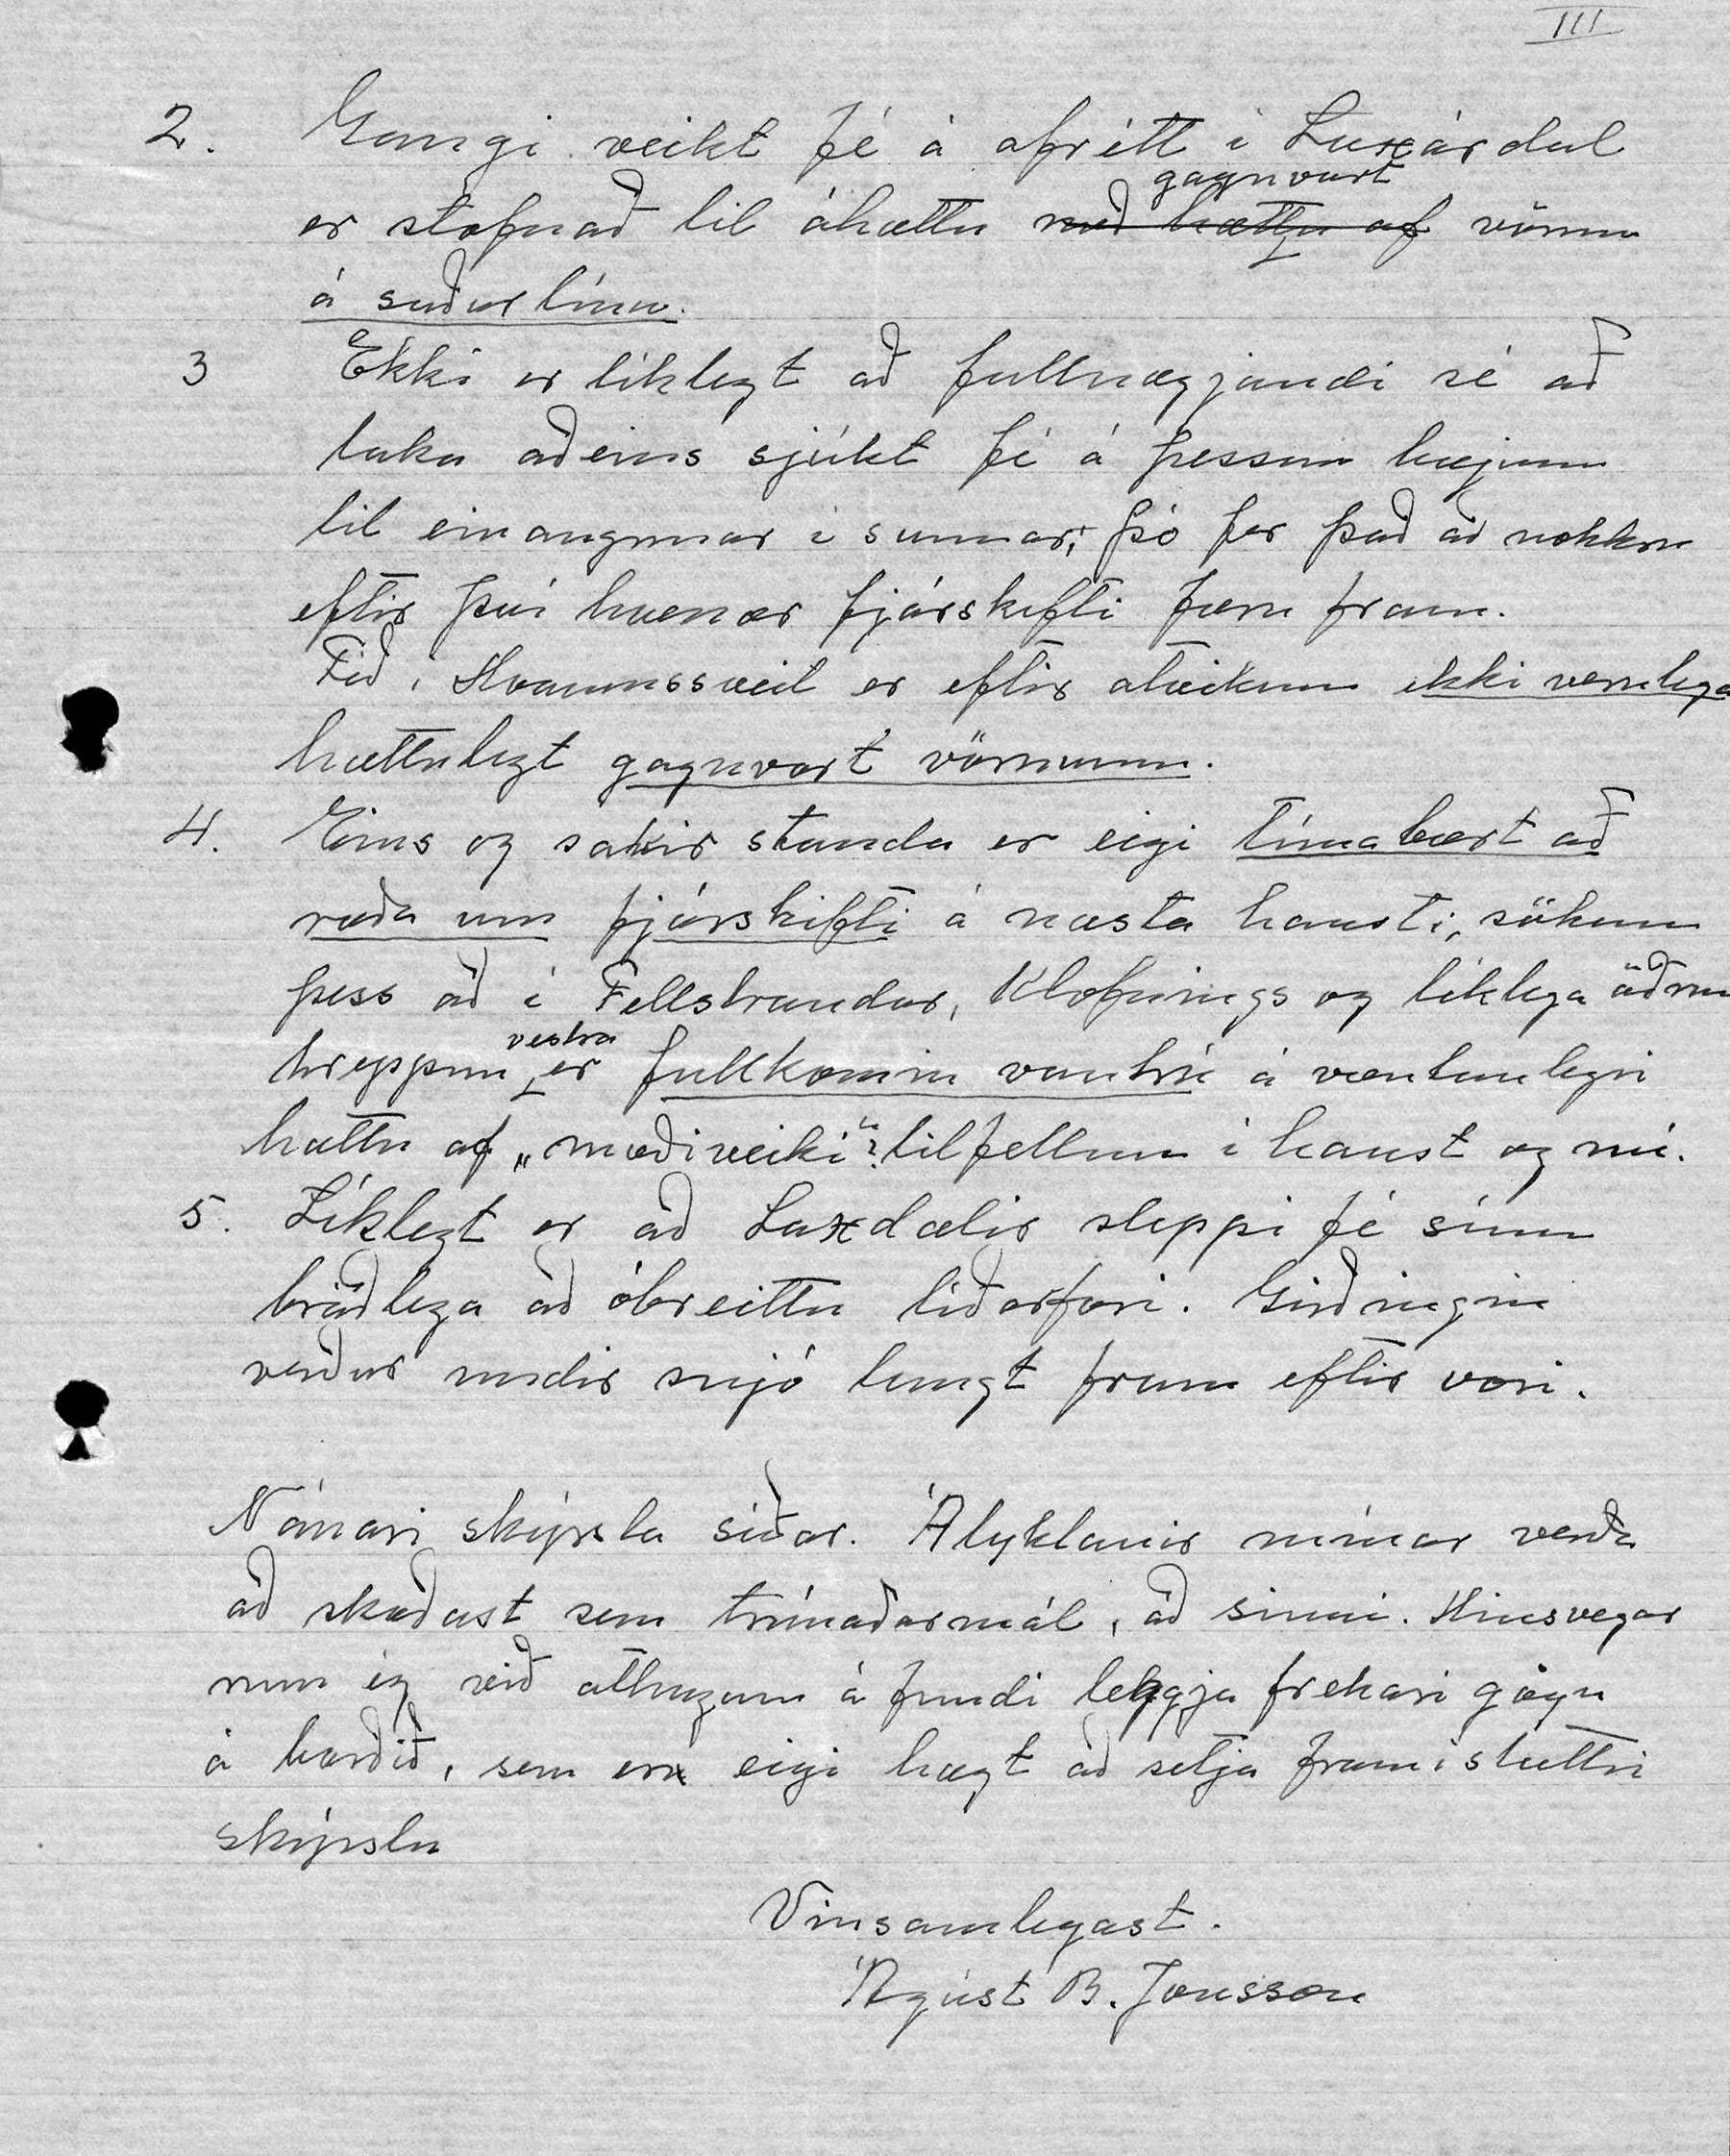 III
2. Gangi veikt fé á afrétt í Laxárdal
gagnvart
er stofnað til áhættu með hættu af vörnum
á suðurlínu.
3 Ekki er líklegt að fullnægjandi sé að
taka aðeins sjúkt fé á þessum bæjum
til einangrunar í sumar; þó fer það að nokkru
eftir því hvenær fjárskifti færu fram.
Féð í Hvammssveit er eftir atvikum ekki verulega
hættulegt gagnvart vörnunum.
4. Eins og sakir standa er eigi tímabært að
ræða um fjárskifti á næsta hausti, sökum
þess að í Fellstrandar, Klofnings og líklega öðrum
vestra
hreppum er fullkomin vantrú á væntanlegri
hættu af „mæðiveiki“? tilfellum í haust og nú.
5. Líklegt er að Laxdælir sleppi fé sínu
bráðlega að óbreittu tíðarfari. Girðingin
verður undir snjó langt fram eftir vori.
Nánari skýrsla síðar. Ályktanir mínar verða
að skoðast sem trúnaðarmál, að sinni. Hinsvegar
mun ég við athugum á fundi leggja frekari gögn
á borðið, sem eru eigi hægt að setja fram í stuttri
skýrslu
Vinsamlegast.
Ágúst B. Jónsson